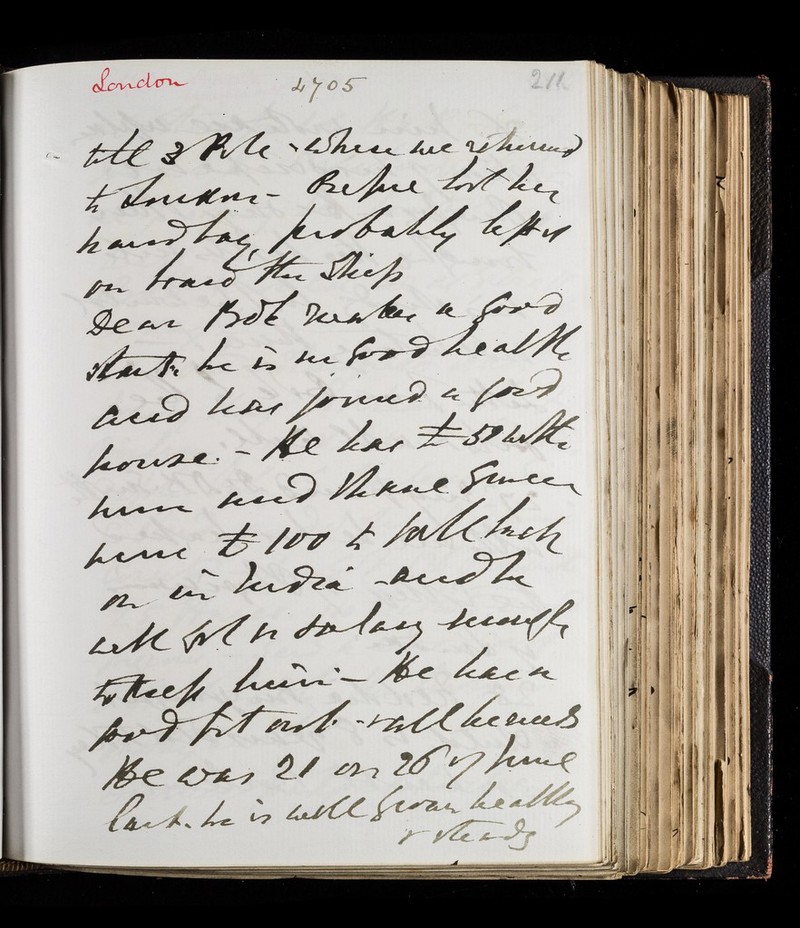 London 4705 211.
till 3 P.M. - when we returned
to London - Bessie lost her
hand bag, probably left it
on board the Ship
Dear Bob makes a good
start he is in good health
and has joined a good
house. - He has £50 with
him and I have given
him £100 to fall back
on in India - and he
will get a salary enough
to keep him - He has a
good fit out - all he needs
He was 21 on 26 of June
last. he is well grown healthy
& steady